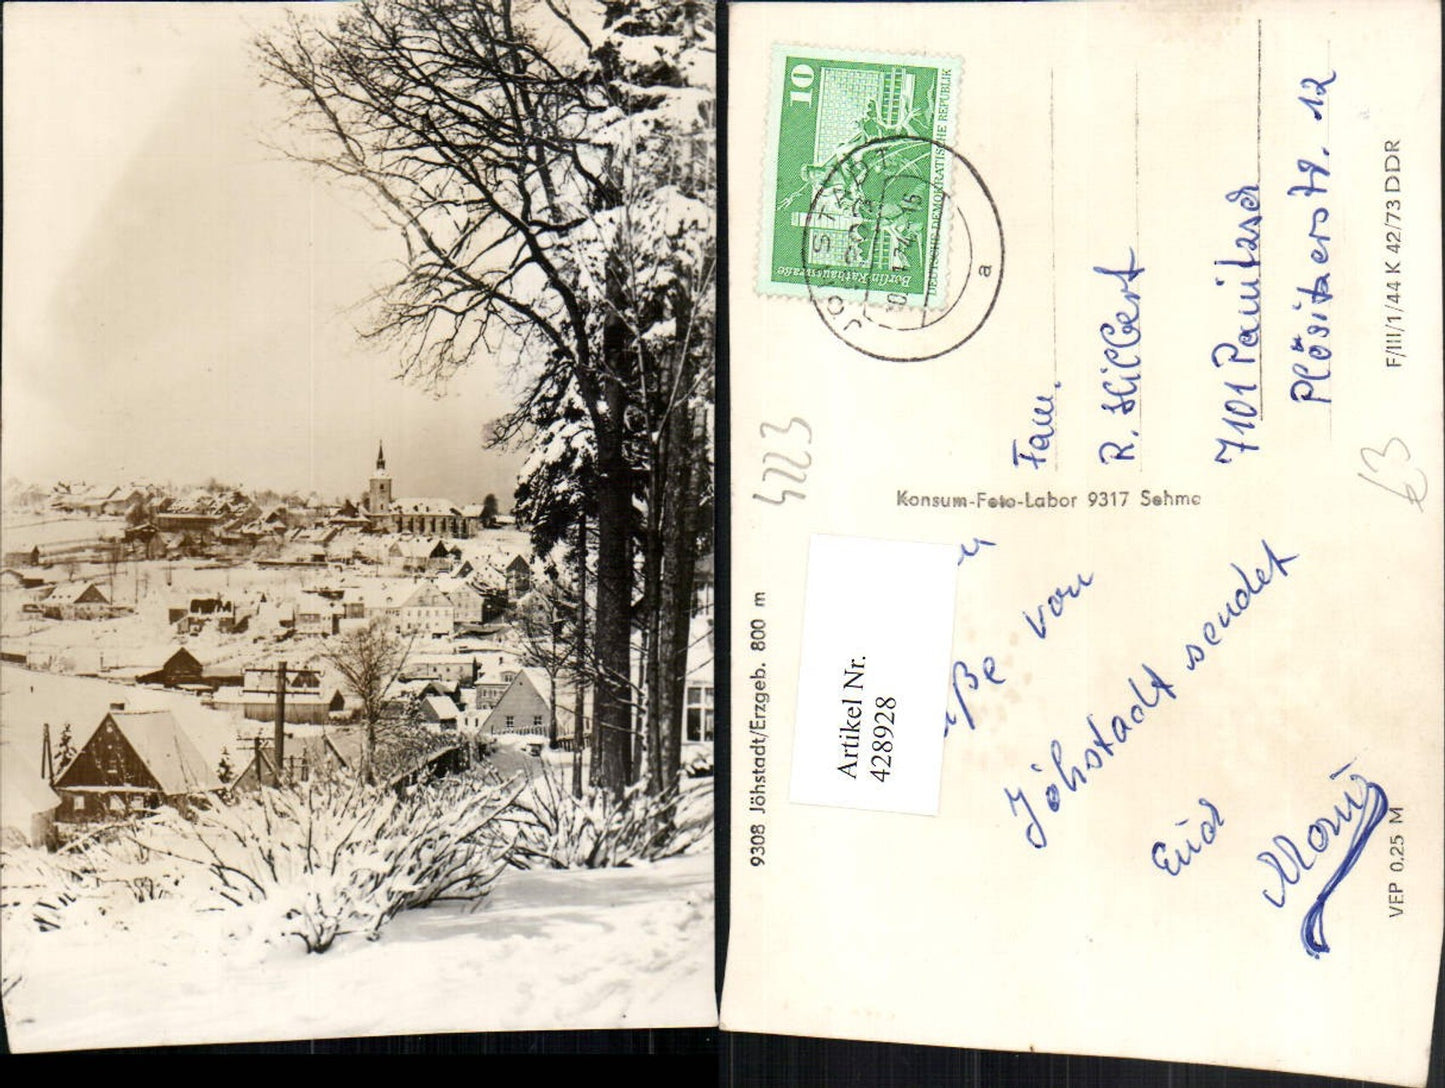 10
DEUTSCHE DEMOKRATISCHE REPUBLIK
Berlin-Rathausstraße
JÖHSTADT
a
Fam.
R. Hilbert
7101 Panitzsch
Plösitzerstr. 12
4223
63
Konsum-Foto-Labor 9317 Sehma
Artikel Nr.
428928
von
Jöhstadt sendet
Euch
9308 Jöhstadt/Erzgeb. 800 m
F/III/1/44 K 42/73 DDR
VEP 0.25 M